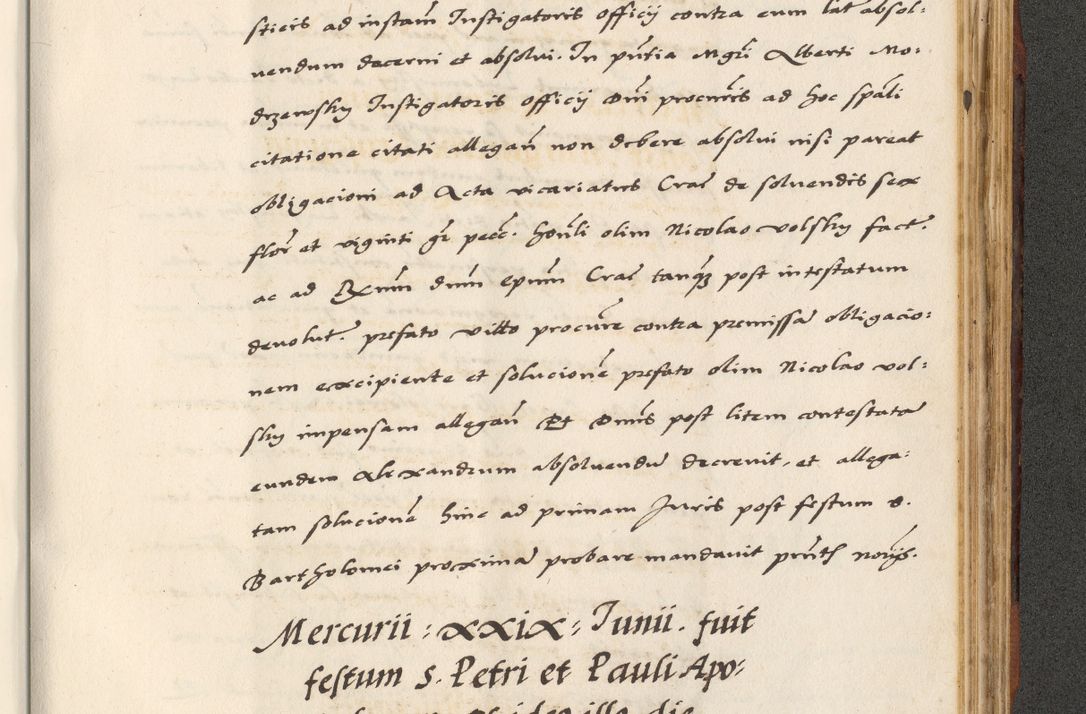 sticis ad instam̄ Instigatoris officij contra eum lat̄ absol:
uendum decerni et absolui. In pn̄tia Mgr̄i Alberti Mo:
drzewsky Instigatoris officij Dn̄i procurēis ad hoc spāli
citatione citati allegan̄ non debere absolui nisi pareat
obligacioni ad Acta vicariatus Crac̄ de soluendis sex
flor̄ et viginti gr̄ pecc̄. hon̄li olim Nicolao volsky fact̄.
ac ad Rx̄mum dn̄um Epūm Crac̄ tanq̄ post intestatum
deuolut̄. prefato vitto procur̄e contra premissā obligacio:
nem excipiente et solucionē prefato olim Nicolao vol:
sky impensam allegan̄ Et Dn̄us post litem contestatā
eundem Alexandrum absoluendū decreuit, et allega:
tam solucionē hinc ad primam Iuris post festum s.
Bartholomei proximā probare mandauit prn̄tb norijs.
Mercurii : xxix : Iunii . fuit
festum s. Petri et Pauli Apo: